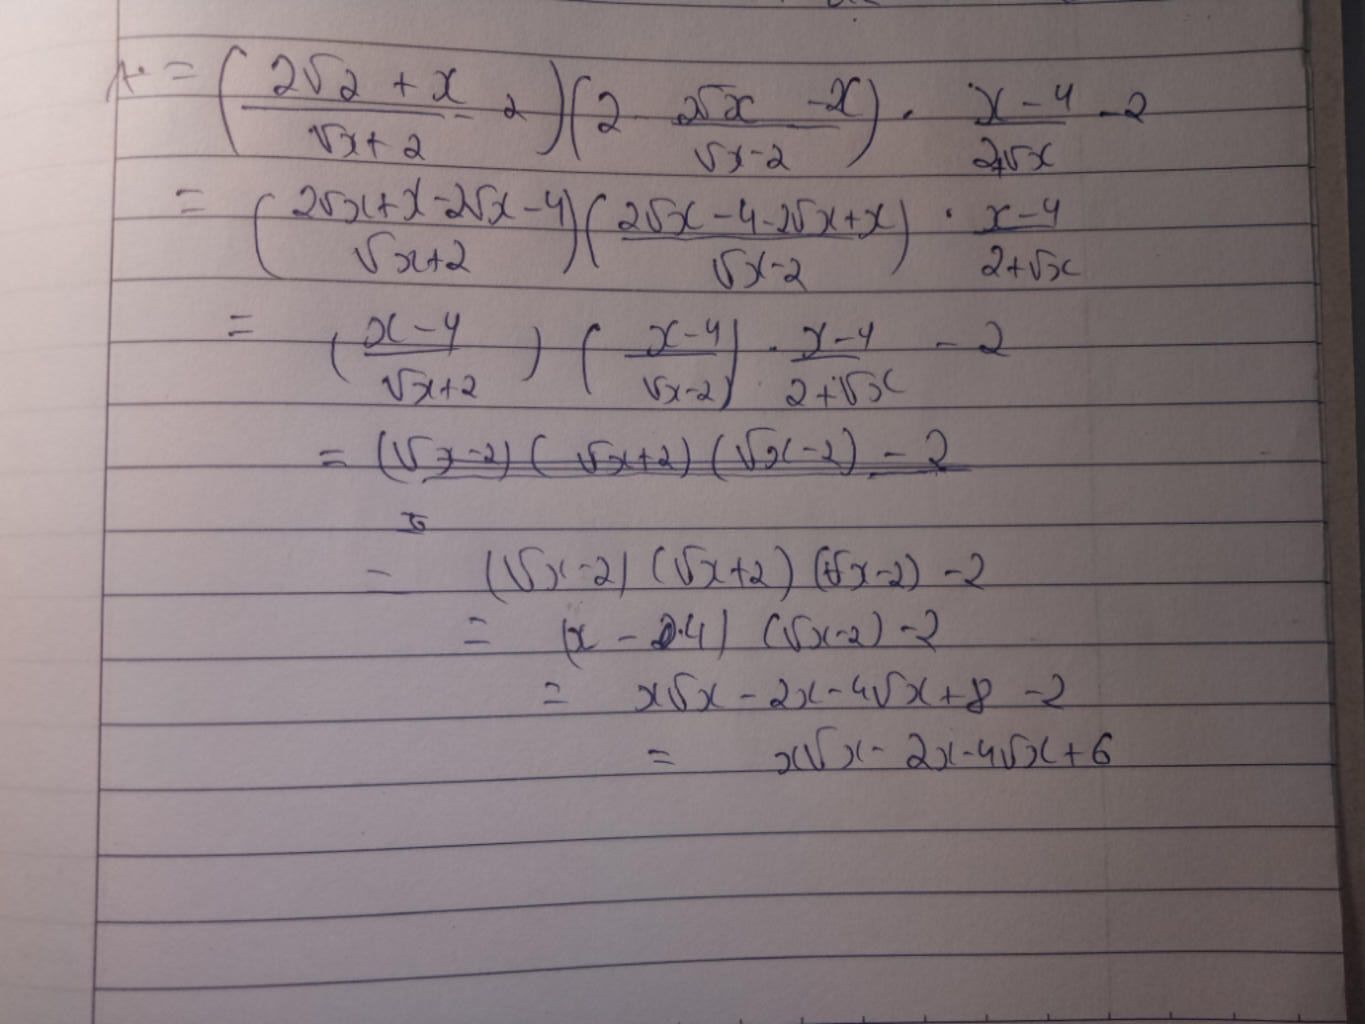 A = ( (2√2 + x)/(√x + 2) - 2 ) ( 2 - (2√x - x)/(√x - 2) ) · (x - 4)/(2+√x) - 2
= ( (2√x + x - 2√x - 4)/(√x + 2) ) ( (2√x - 4 - 2√x + x)/(√x - 2) ) · (x - 4)/(2 + √x)
= ( (x - 4)/(√x + 2) ) ( (x - 4)/(√x - 2) ) · (x - 4)/(2 + √x) - 2
= (√x - 2) (√x + 2) (√x - 2) - 2
= (√x - 2) (√x + 2) (√x - 2) - 2
= (x - 4) (√x - 2) - 2
= x√x - 2x - 4√x + 8 - 2
= x√x - 2x - 4√x + 6